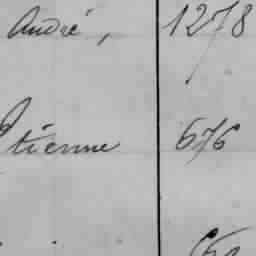 André, 1278
Étienne 676